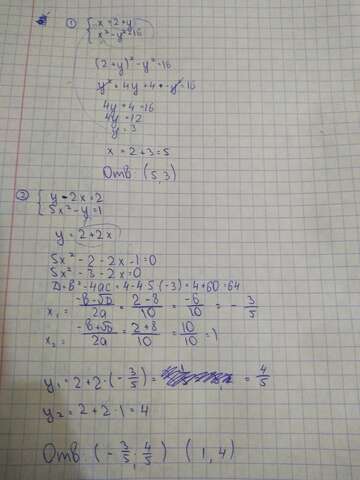 ① { x = 2 + y
x² - y² = 16
(2+y)² - y² = 16
y² = 4y + 4 - y² = 16
4y + 4 = 16
4y = 12
y = 3
x = 2 + 3 = 5
Отв (5, 3)
② { y - 2x = 2
5x² - y = 1
y = 2 + 2x
5x² - 2 - 2x - 1 = 0
5x² - 3 - 2x = 0
D = b² - 4ac = 4 - 4·5·(-3) = 4 + 60 = 64
x₁ = (-b - √D)/2a = (2 - 8)/10 = -6/10 = -3/5
x₂ = (-b + √D)/2a = (2 + 8)/10 = 10/10 = 1
y₁ = 2 + 2·(-3/5) = = 4/5
y₂ = 2 + 2·1 = 4
Отв (-3/5; 4/5) (1, 4)